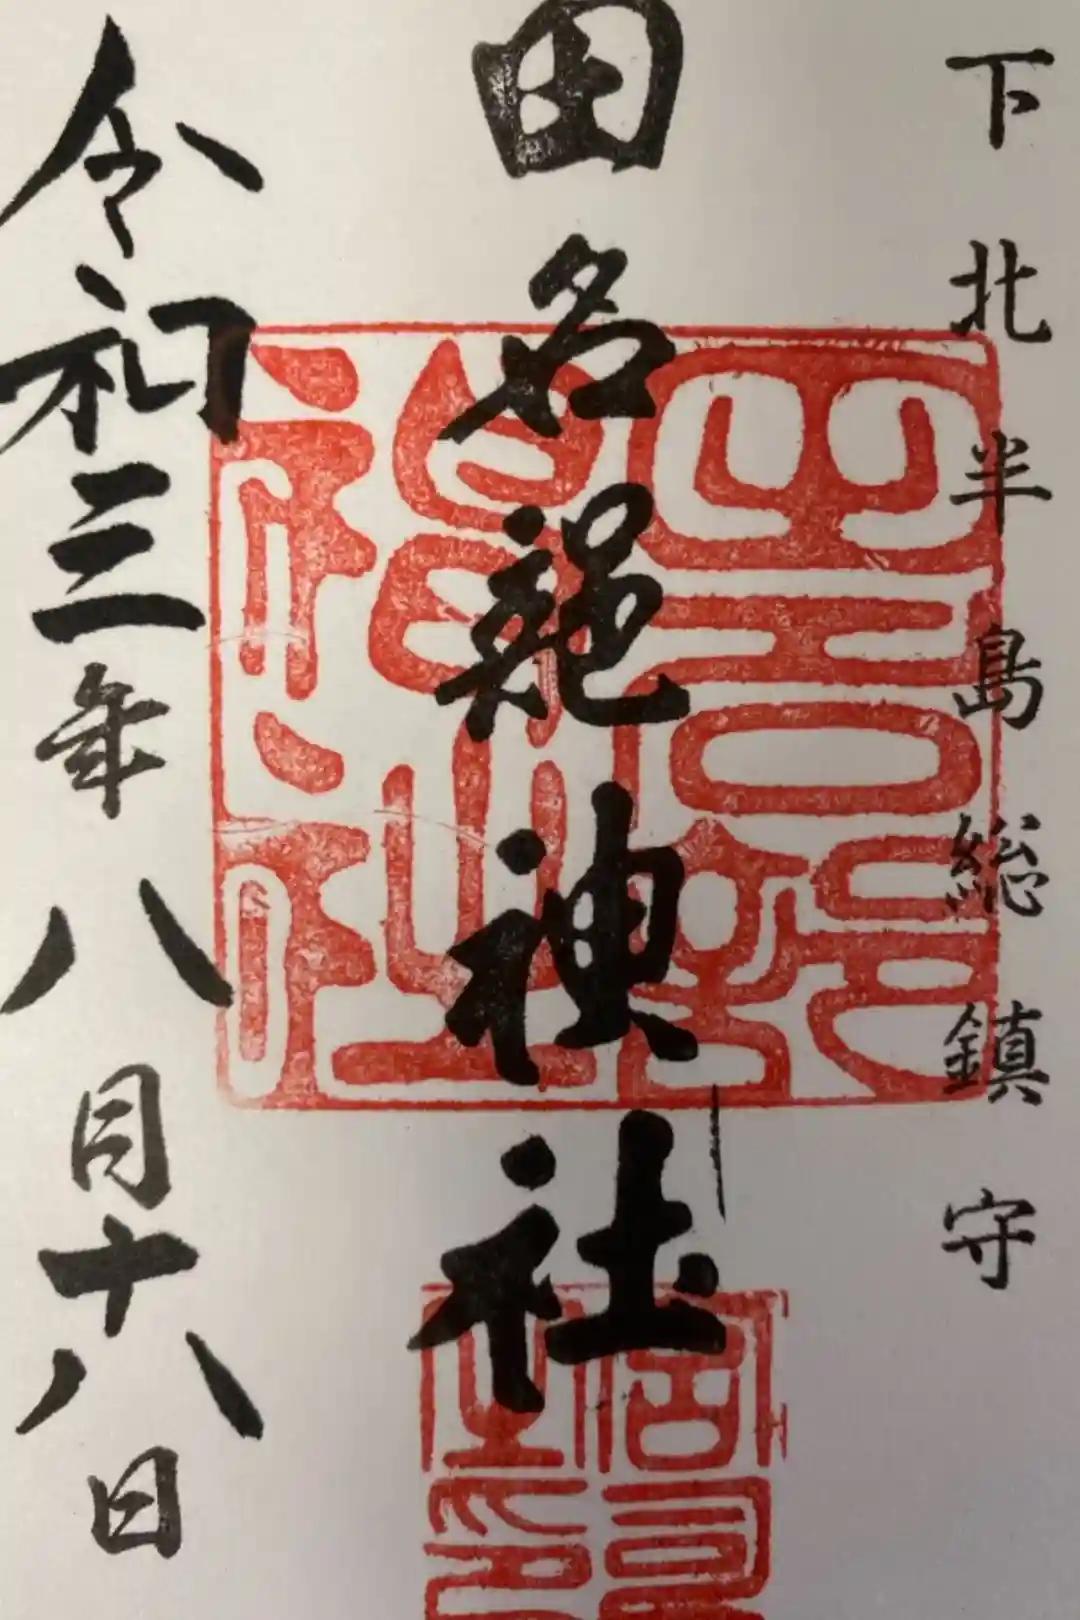 下北半島総鎮守
田名部神社
令和三年八月十八日